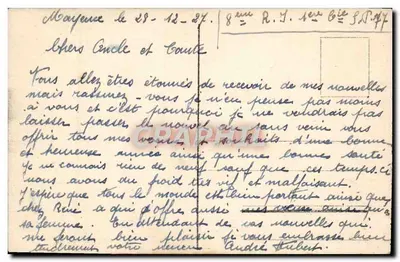 Mayence le 28-12-27. 8eme R.I. 1ere Cie S.P. 77
Chers Oncle et Tante
Vous allez êtres étonnés de recevoir de mes nouvelles
mais rassurez-vous je n'en pense pas moins
à vous et c'est pourquoi je ne vendrais pas
laisser passer le nouvel an sans venir vous
offrir tous mes voeux et souhaits d'une bonne
et heureuse année ainsi qu'une bonnes santé
je ne connais rien de neuf sauf que ces temps-ci
nous avons du froid très vif et malfaisant.
J'espère que tous le monde est bien portant ainsi que
chez René à qui j'offre aussi
sa femme. En attendant de vos nouvelles qui
me feront bien plaisir je vous embrasse bien
tendrement votre neveu André Hubert.